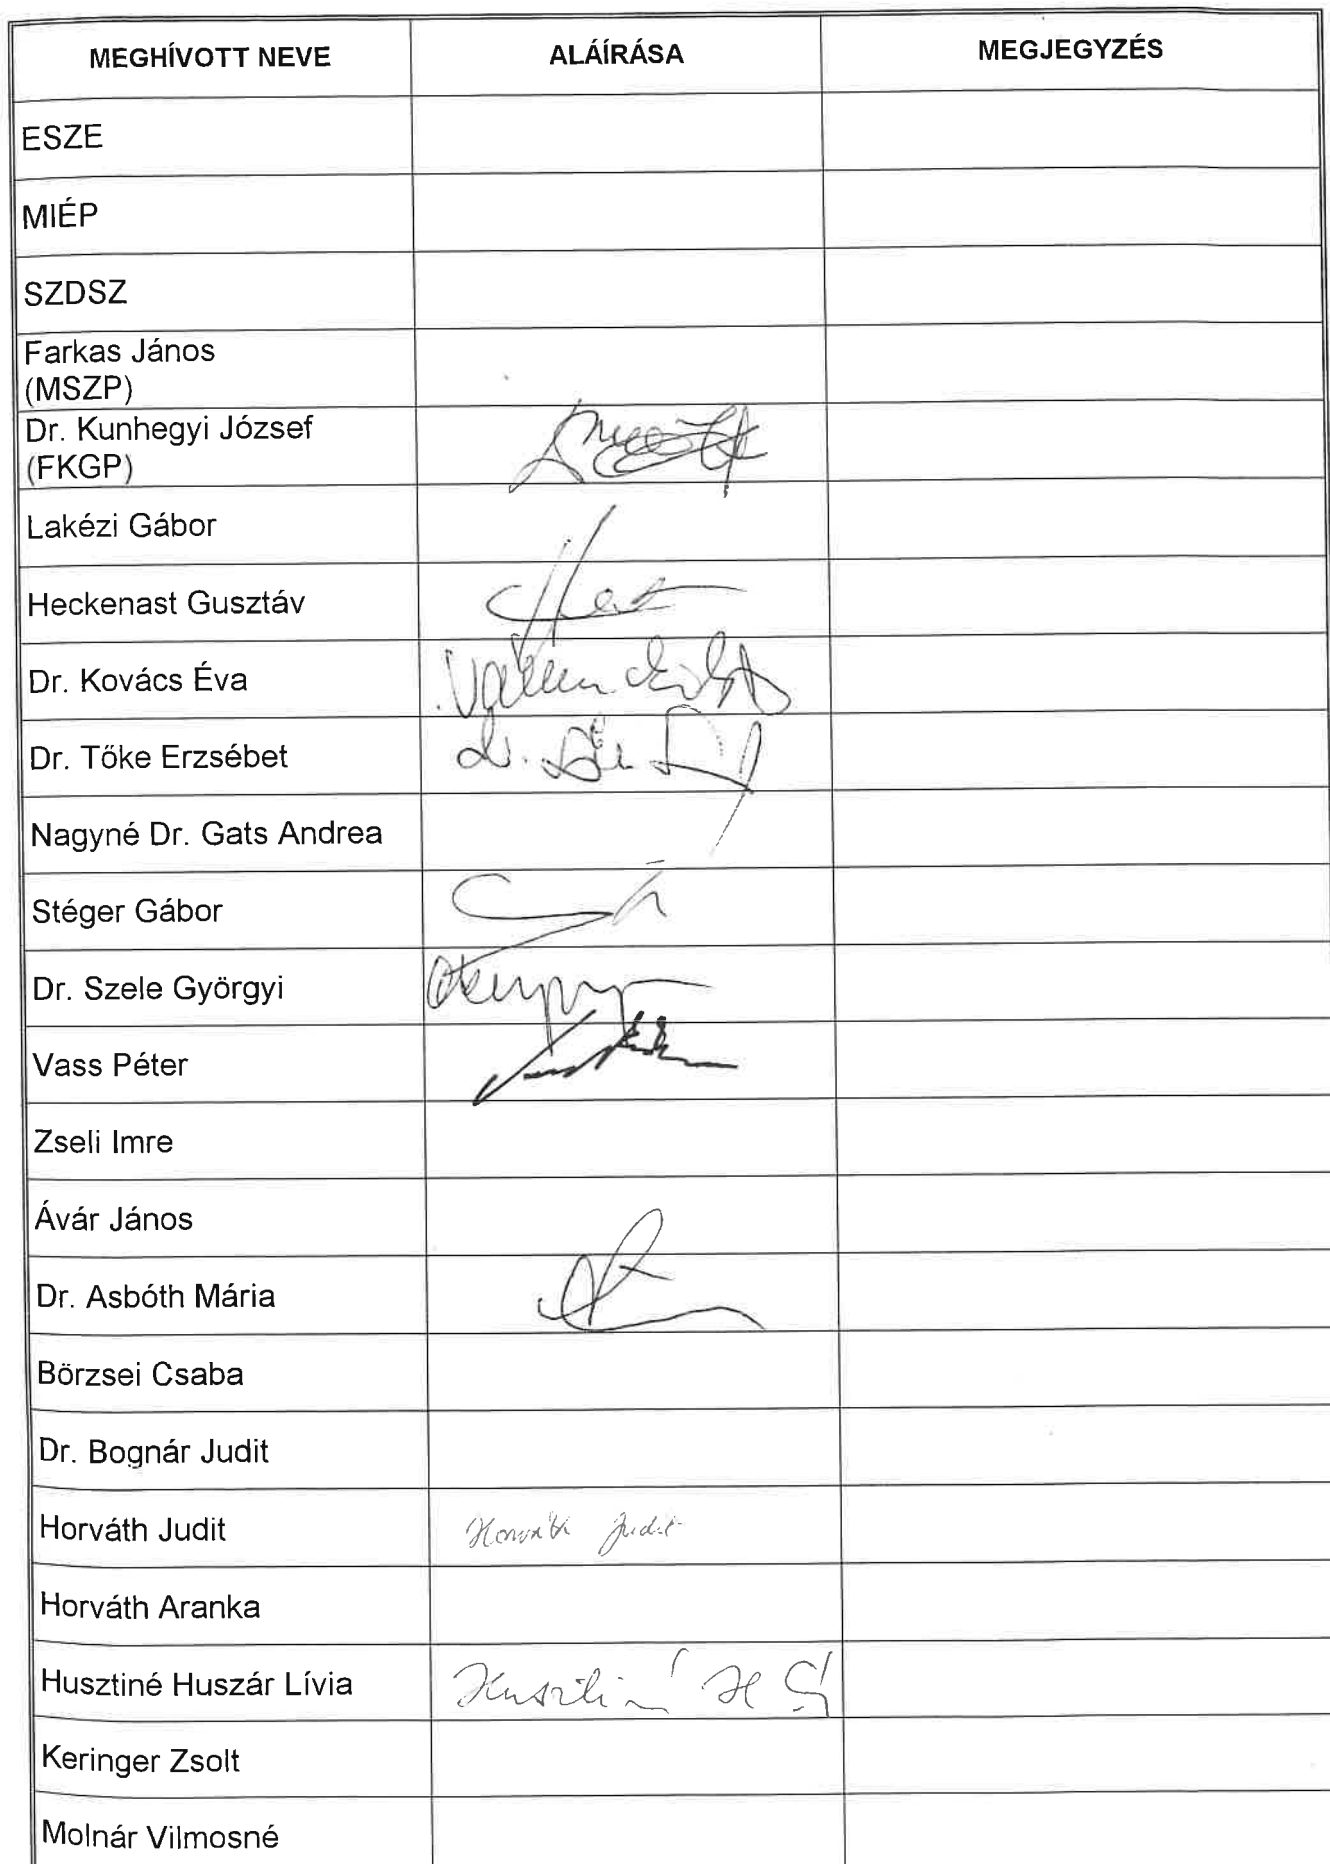 MEGHÍVOTT NEVE ALÁÍRÁSA MEGJEGYZÉS
ESZE
MIÉP
SZDSZ
Farkas János
(MSZP)
Dr. Kunhegyi József
(FKGP)
Lakézi Gábor
Heckenast Gusztáv
Dr. Kovács Éva
Dr. Tőke Erzsébet dr.
Nagyné Dr. Gats Andrea
Stéger Gábor
Dr. Szele Györgyi
Vass Péter
Zseli Imre
Ávár János
Dr. Asbóth Mária
Börzsei Csaba
Dr. Bognár Judit
Horváth Judit Horváth Judit
Horváth Aranka
Husztiné Huszár Lívia Husztiné H
Keringer Zsolt
Molnár Vilmosné